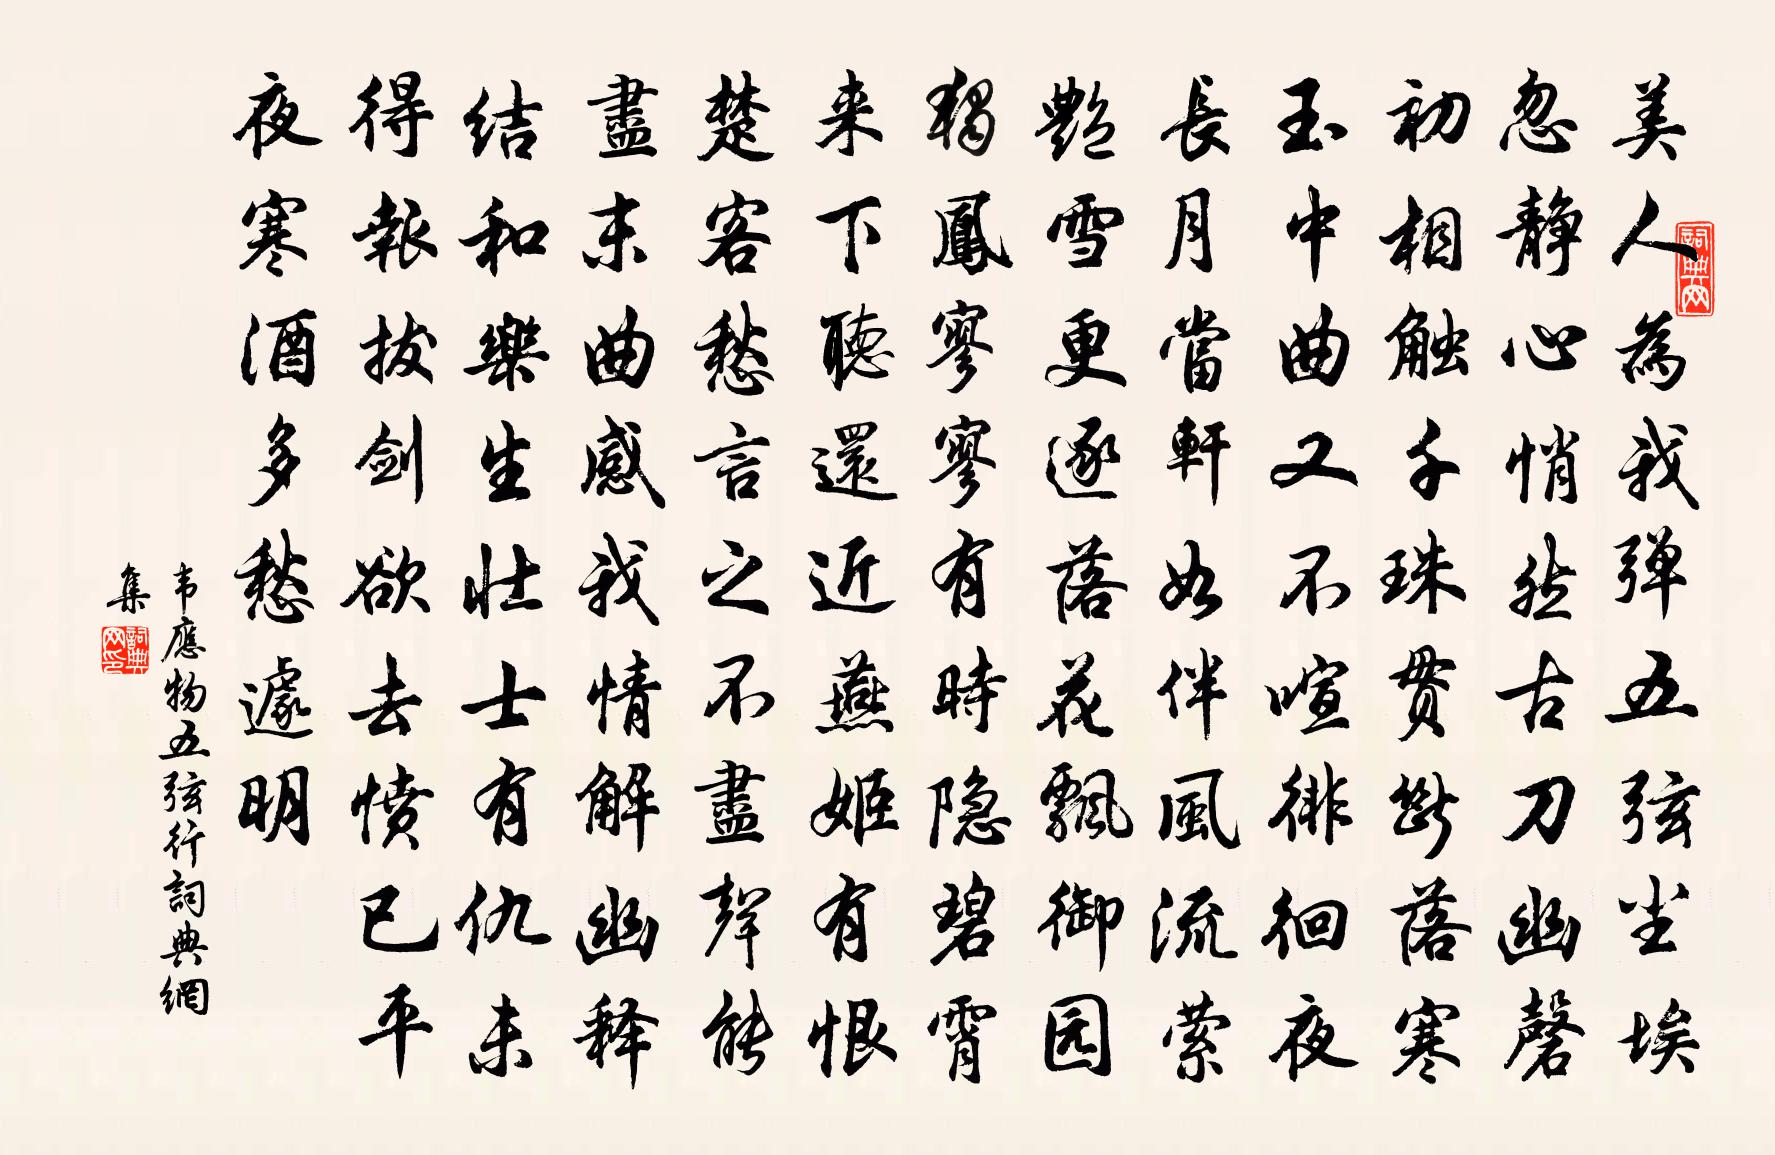 詞典网
美人為我弹五弦尘埃
忽静心悄然古刀幽磬
初相触千珠贯斷落寒
玉中曲又不喧徘徊夜
長月當軒如伴風流萦
艷雪更逐落花飄御园
獨鳳寥寥有時隐碧霄
来下聽還近燕姬有恨
楚客愁言之不盡聲能
盡末曲感我情解幽释
结和樂生壮士有仇未
得報拔剑欲去愤已平
夜寒酒多愁遽明
韦應物五弦行詞典網
集
詞典网印